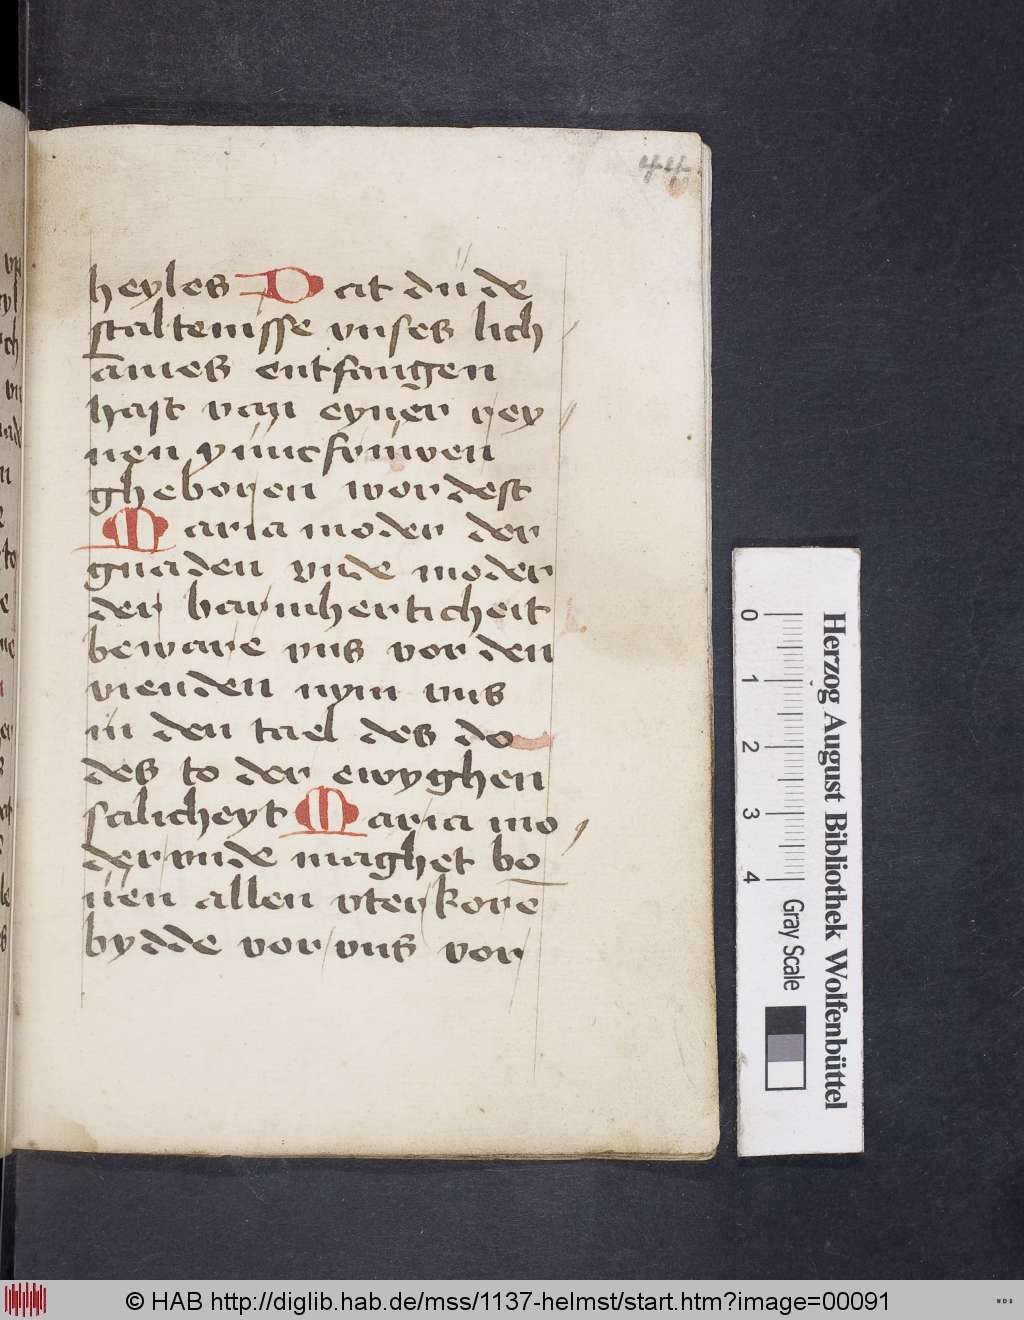 44
heyles Dat du de
staltenisse vnses lich
ames entfangen
hast van eyner rey
nen yuncfrouwen
gheboren wordest
Maria moder der
gnaden vnde moder
der barmherticheit
beware vns vor den
vienden nym vns
in den tael des do
des to der ewyghen
salicheyt Maria mo
der vnde maghet bo
uen allen vterkorē
bydde vor vns vor
Herzog August Bibliothek Wolfenbüttel
0 1 2 3 4 Gray Scale
© HAB http://diglib.hab.de/mss/1137-helmst/start.htm?image=00091